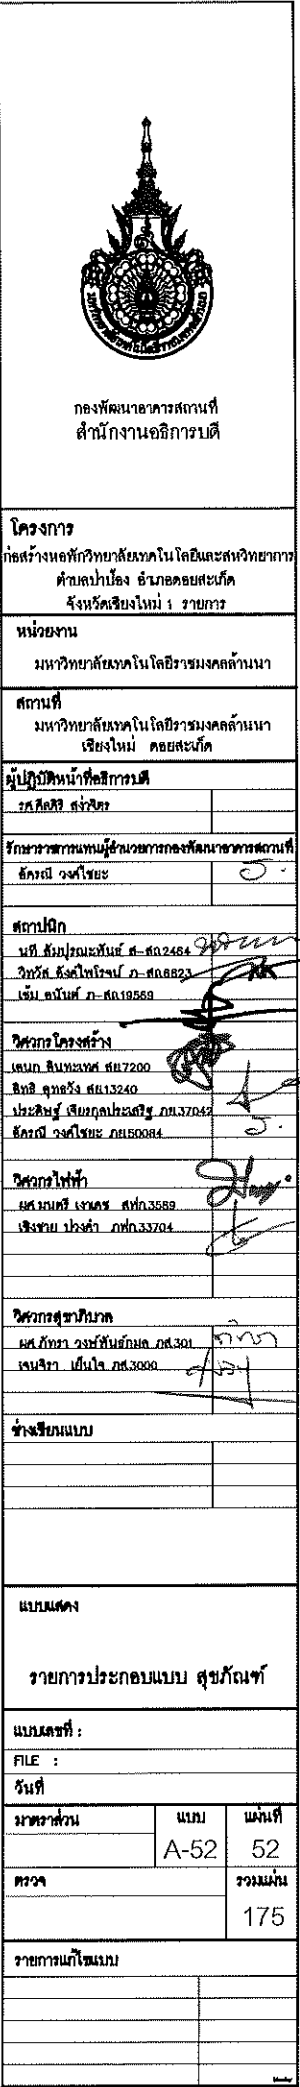 กองพัฒนาอาคารสถานที่
สำนักงานอธิการบดี
โครงการ
ก่อสร้างหอพักวิทยาลัยเทคโนโลยีและสหวิทยาการ
ตำบลป่าป้อง อำเภอดอยสะเก็ด
จังหวัดเชียงใหม่ 1 รายการ
หน่วยงาน
มหาวิทยาลัยเทคโนโลยีราชมงคลล้านนา
สถานที่
มหาวิทยาลัยเทคโนโลยีราชมงคลล้านนา
เชียงใหม่ ดอยสะเก็ด
ผู้ปฏิบัติหน้าที่อธิการบดี
รศ.ศีลศิริ สง่าจิตร
รักษาราชการแทนผู้อำนวยการกองพัฒนาอาคารสถานที่
อัครณี วงศ์ไชยะ
สถาปนิก
นที สัมปุรณะพันธ์ ส-สถ2464
วิทวัส อังศ์ไพโรจน์ ภ-สถ8823
เข้ม อนันต์ ภ-สถ19569
วิศวกรโครงสร้าง
เสนก สินทะเทศ สย7200
สิทธิ คุทธวัง สย13240
ประดิษฐ์ เจียรกุลประเสริฐ ภย.37042
อัครณี วงศ์ไชยะ ภย50084
วิศวกรไฟฟ้า
ผศ.มนตรี เงาเดช สฟก.3589
เชิงชาย ปวงคำ ภฟก.33704
วิศวกรสุขาภิบาล
ผศ.ภัทรา วงษ์พันธ์กมล ภส.301
เจนจิรา เย็นใจ ภส.3000
ช่างเขียนแบบ
แบบแสดง
รายการประกอบแบบ สุขภัณฑ์
แบบเลขที่ :
FILE :
วันที่
มาตราส่วน แบบ แผ่นที่
A-52 52
ตรวจ รวมแผ่น
175
รายการแก้ไขแบบ